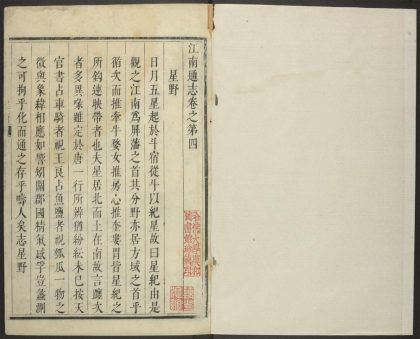 江南通志卷之第四
星野
日月五星起於斗宿從斗以紀星故曰星紀由是
觀之江南為屏藩之首其分野亦居方域之首乎
循次而推牽牛婺女推房心推奎婁胃皆星紀之
所鈎連映帶者也夫星居北而上在南故言躔次
者多異喙雖定於唐一行所辨猶紛紜未已按天
官書占車騎者視王良占魚鹽者視瓠瓜一物之
微與象緯相應如響矧關郡國精氣感孚豈蠡測
之可拘乎化而通之存乎疇人矣志星野